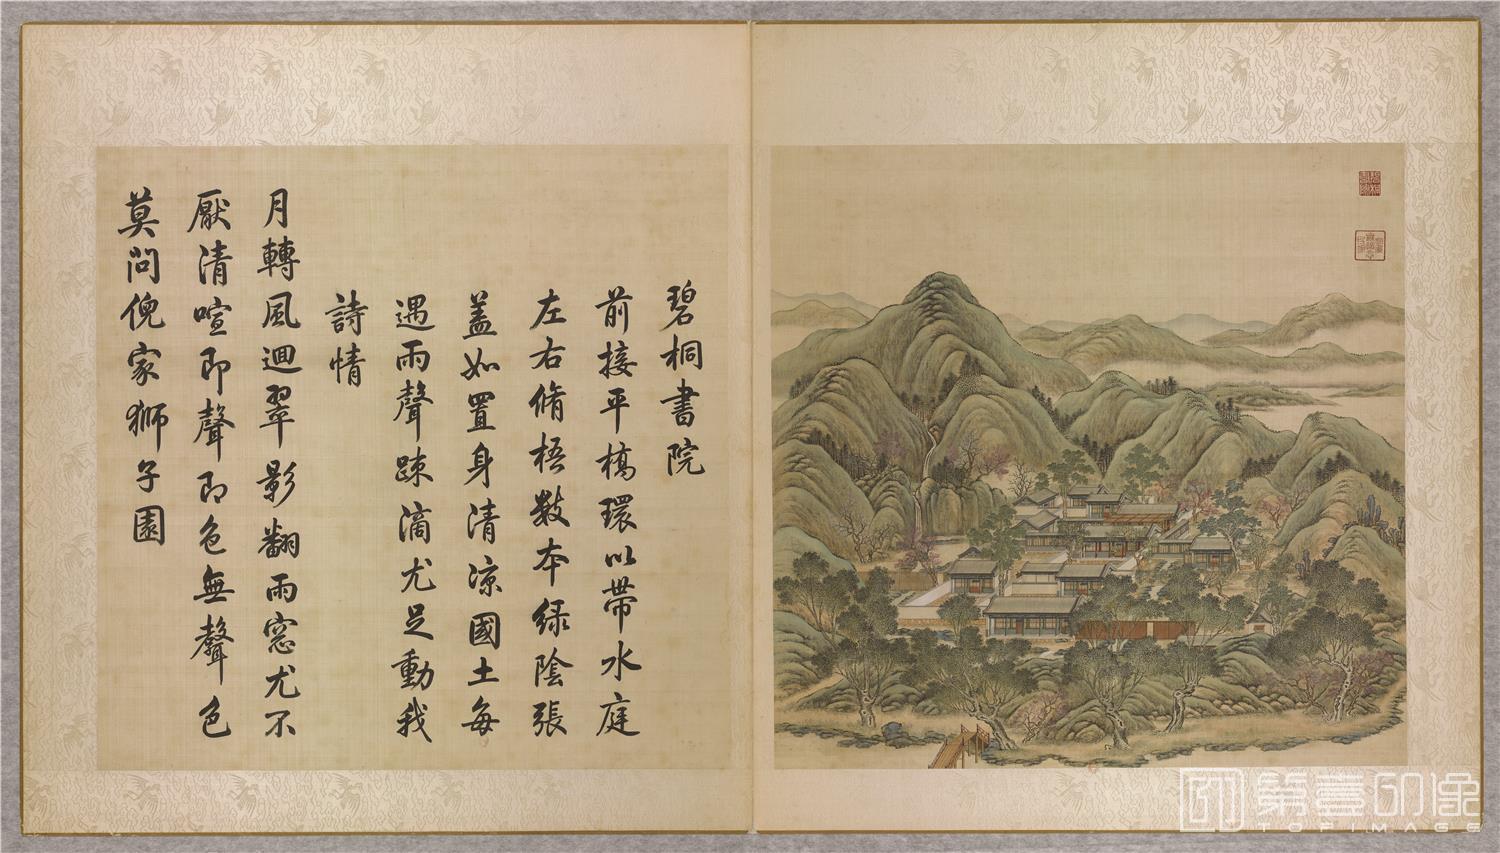 碧桐書院
前接平橋環以帶水庭
左右脩梧數本綠陰張
蓋如置身清涼國土每
遇雨聲踈滴尤足動我
詩情
月轉風迴翠影翻雨窓尤不
厭清喧即聲即色無聲色
莫問倪家獅子園
第壹印像
TOPIMAGE